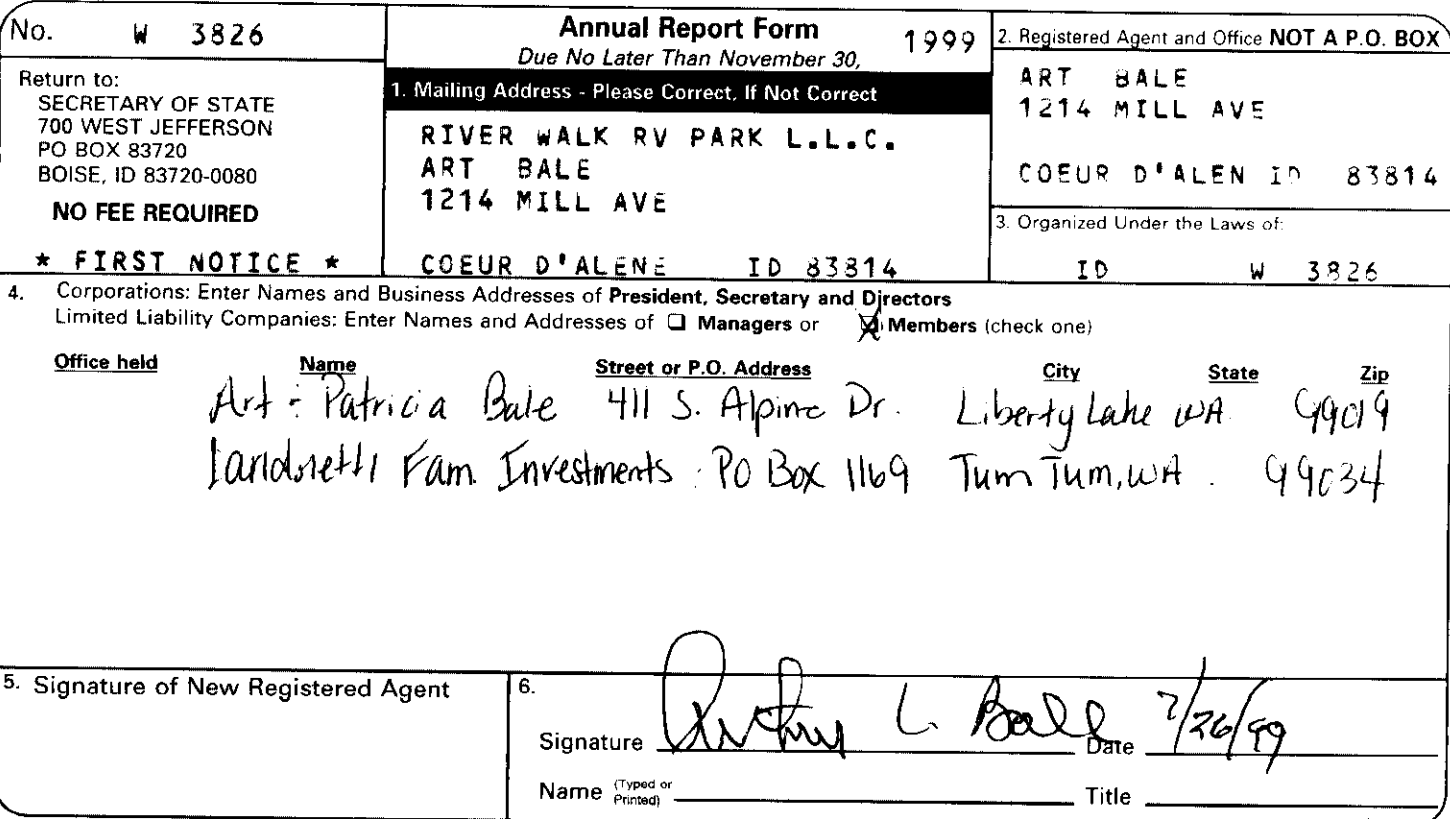 No. W 3826
Return to:
SECRETARY OF STATE
700 WEST JEFFERSON
PO BOX 83720
BOISE, ID 83720-0080
NO FEE REQUIRED
* FIRST NOTICE *
Annual Report Form 1999
Due No Later Than November 30,
1. Mailing Address - Please Correct, If Not Correct
RIVER WALK RV PARK L.L.C.
ART BALE
1214 MILL AVE
COEUR D'ALENE ID 83814
2. Registered Agent and Office NOT A P.O. BOX
ART BALE
1214 MILL AVE
COEUR D'ALEN ID 83814
3. Organized Under the Laws of:
ID W 3826
4. Corporations: Enter Names and Business Addresses of President, Secretary and Directors
Limited Liability Companies: Enter Names and Addresses of ☐ Managers or ☒ Members (check one)
Office held Name Street or P.O. Address City State Zip
Art : Patricia Bale 411 S. Alpine Dr. Liberty Lake WA 99019
Fam. Investments PO Box 1169 Tum Tum, WA. 99034
5. Signature of New Registered Agent
6.
Signature L. Bale Date 7/26/99
Name (Typed or Printed) Title